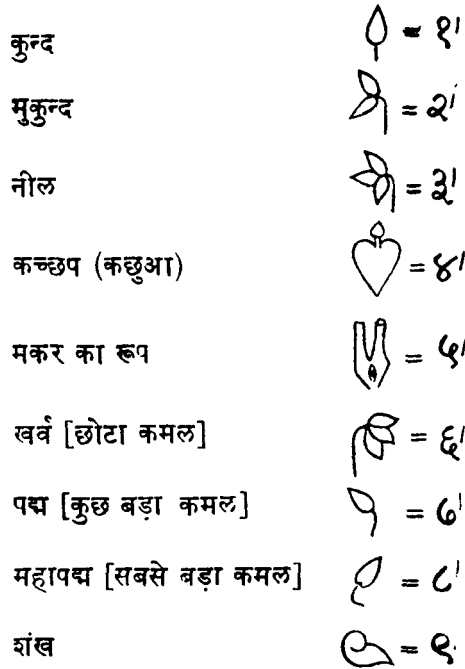 कुन्द = १'
मुकुन्द = २'
नील = ३'
कच्छप (कछुआ) = ४'
मकर का रूप = ५'
खर्व [छोटा कमल] = ६'
पद्म [कुछ बड़ा कमल] = ७'
महापद्म [सबसे बड़ा कमल] = ८'
शंख = ९.